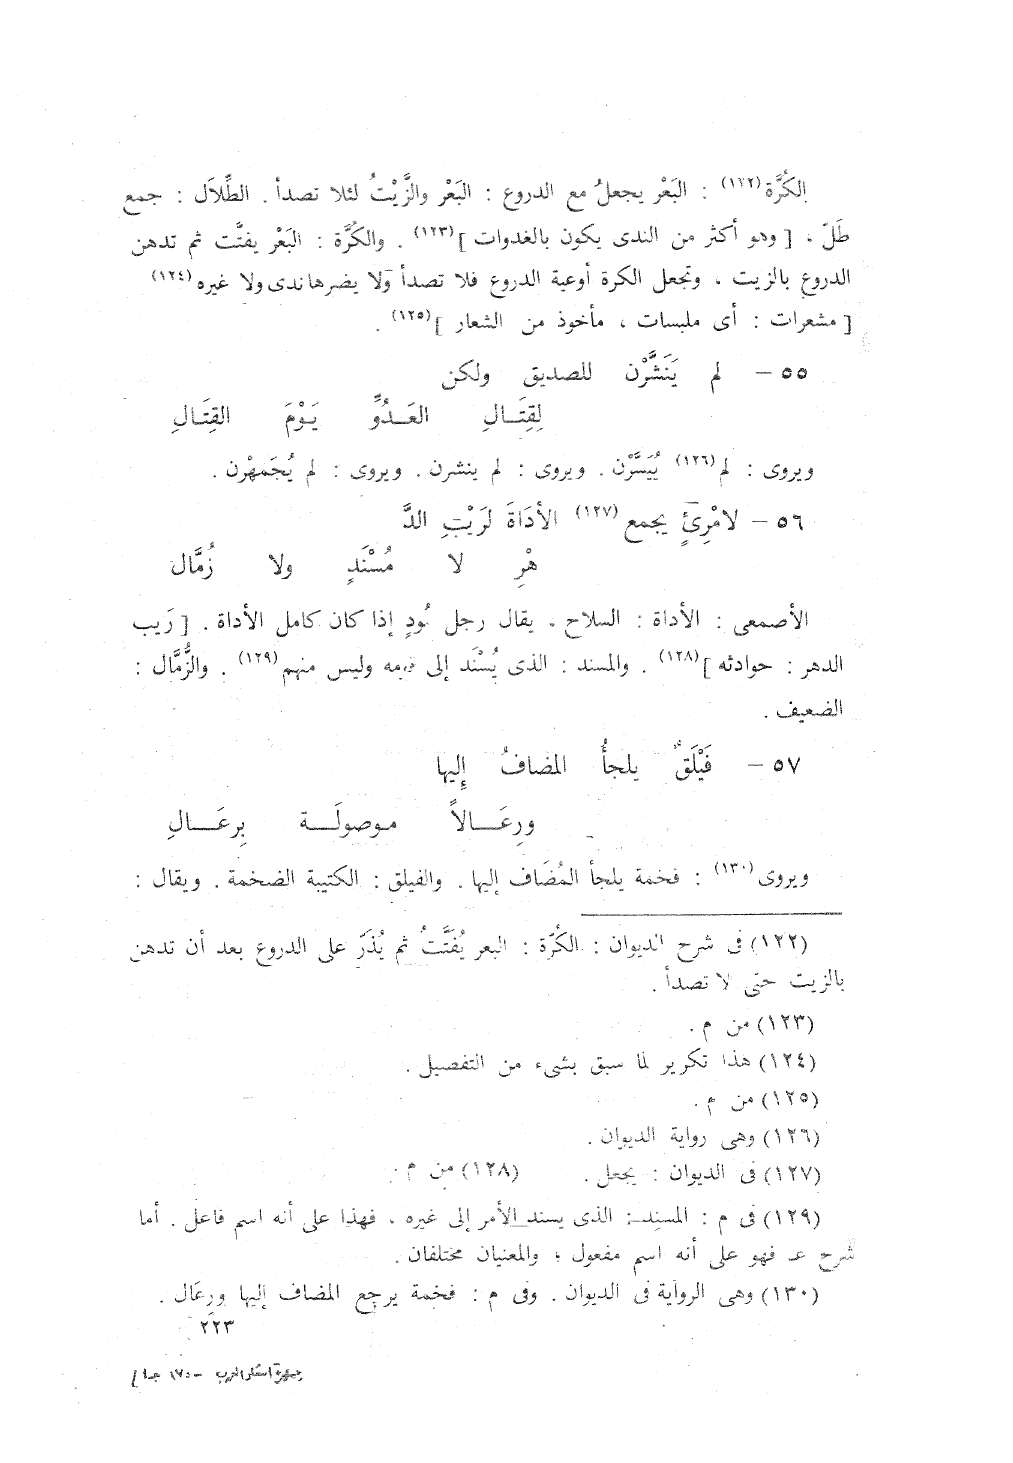 الكُرَّة(١٢٢) : البَعْر يجعلُ مع الدروع : البَعْر والزَّيْتُ لئلا تصدأ . الطِّلاَل : جمع
طَلّ ، [ وهو أكثر من الندى يكون بالغدوات ](١٢٣) . والكُرَّة : البَعْر يفتَّت ثم تدهن
الدروع بالزيت ، وتجعل الكرة أوعية الدروع فلا تصدأ ولا يضرها ندى ولا غيره(١٢٤)
[ مشعرات : أى ملبسات ، مأخوذ من الشعار ](١٢٥) .
٥٥ – لم يَنَشَّرْن للصديق ولكن
لِقِتَـالِ العَـدُوِّ يَـوْمَ القِتَـالِ
ويروى : لم(١٢٦) يُيَسَّرْن . ويروى : لم ينشرن . ويروى : لم يُجَمهْرن .
٥٦ – لامْرِئٍ يجمع(١٢٧) الأدَاةَ لرَيْبِ الدَّ
هْرِ لا مُسْنَدٍ ولا زُمَّال
الأصمعى : الأداة : السلاح ، يقال رجل مُودٍ إذا كان كامل الأداة . [ رَيب
الدهر : حوادثه ](١٢٨) . والمسند : الذى يُسْنَد إلى قومه وليس منهم(١٢٩) . والزُّمَّال :
الضعيف .
٥٧ – فَيْلَقٌ يلجأُ المضافُ إليها
ورِعَـــالاً موصولَـــة بِرعَـــالِ
ويروى(١٣٠) : فخمة يلجأ المُضَاف إليها . والفيلق : الكتيبة الضخمة . ويقال :
(١٢٢) فى شرح الديوان : الكُرّة : البعر يُفَتَّتُ ثم يُذَرّ على الدروع بعد أن تدهن
بالزيت حتى لا تصدأ .
(١٢٣) من م .
(١٢٤) هذا تكرير لما سبق بشىء من التفصيل .
(١٢٥) من م .
(١٢٦) وهى رواية الديوان .
(١٢٧) فى الديوان : يجعل . (١٢٨) من م .
(١٢٩) فى م : المسنِد : الذى يسند الأمر إلى غيره ، فهذا على أنه اسم فاعل . أما
شرح عـ فهو على أنه اسم مفعول ؛ والمعنيان مختلفان .
(١٣٠) وهى الرواية فى الديوان . وفى م : فخمة يرجع المضاف إليها ورِعَال .
٢٢٣
جمهرة أشعار العرب – ١٧٥ جـ ١ ]